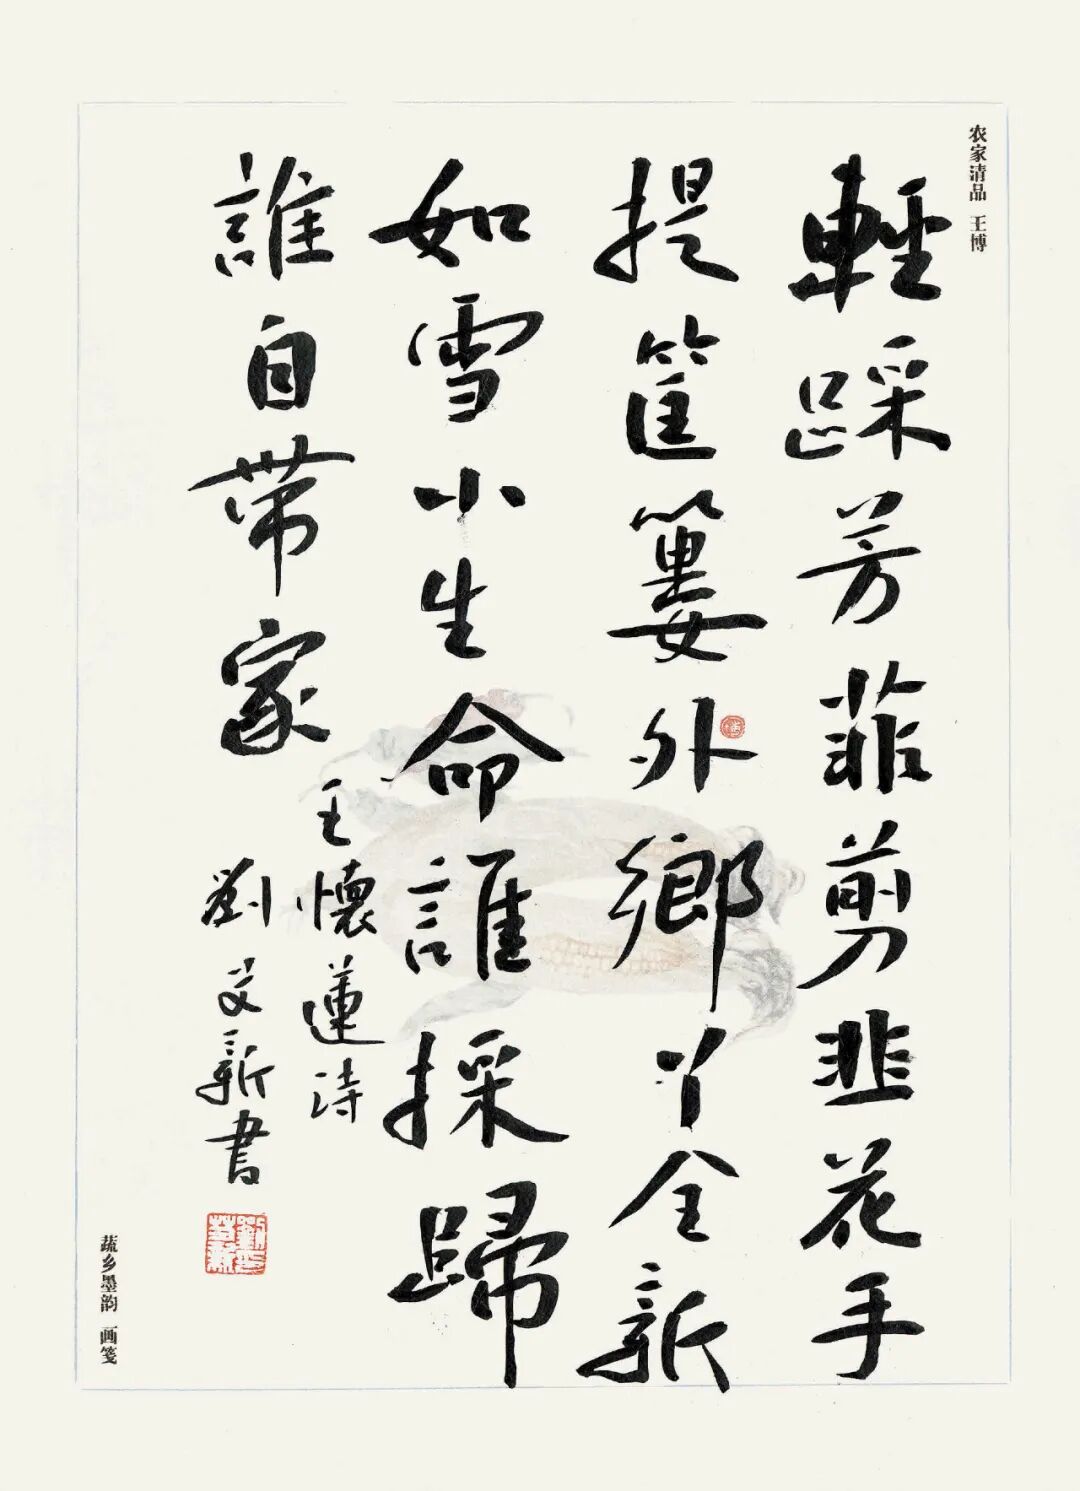 农家清品 王博
輕踩芳菲剪韭花手
提筐簍外鄉丫全新
如雪小生命誰採歸
誰自帶家
王懷蓮詩
劉艾新書
蔬乡墨韵 画笺